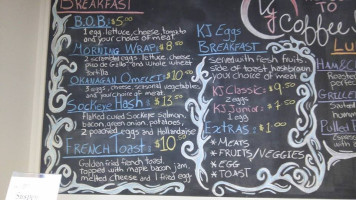 BREAKFAST
B.O.B! $5.00
1 egg, lettuce, cheese, tomato
and your choice of meat
MORNING WRAP: $8.50
2 scrambled eggs, lettuce, cheese,
Pico de Gallo and whole wheat
tortilla
OKANAGAN OMELET $10.50
3 eggs, cheese, seasonal vegetables
and your choice of grilled
SOCKEYE HASH: $13.50
Flatted cured Sockeye Salmon,
bacon, green onion, potatoes,
2 poached eggs and Hollandaise
FRENCH TOAST: $10
Golden fried french toast
topped with maple bacon jam,
melted cheese and 1 fried egg
KJ Eggs
BREAKFAST
served with fresh fruits,
side of toast, hashbrown
your choice of meat
KJ Classic: $9.50
2 eggs
KJ Junior: $7.50
1 egg
EXTRAS: $1.00
* MEATS
* FRUITS/VEGGIES
* EGG
* TOAST
TO
COFFEE
LU
HAM&
GRILLE
Pulled